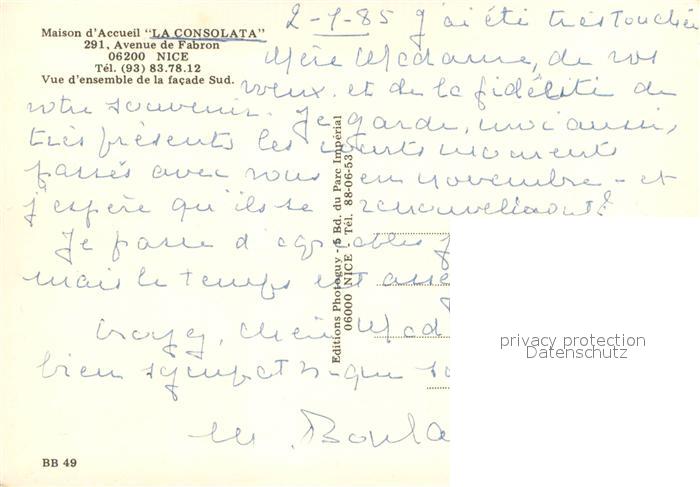 Maison d'Accueil "LA CONSOLATA"
291, Avenue de Fabron
06200 NICE
Tél. (93) 83.78.12
Vue d'ensemble de la façade Sud.
2-1-85 J'ai été très touchée
Chère Madame, de vos
voeux et de la fidélité de
votre souvenir. Je garde, moi aussi,
très présents les courts moments
passés avec vous en novembre - et
j'espère qu'ils se renouvelleront!
Je passe d'agréables
mais le temps est
Croyez, chère Mad
bien sympathique
M. Boula
Editions Photoguy - 5 Bd. du Parc Impérial
06000 NICE - Tél. 88-06-53
privacy protection
Datenschutz
BB 49